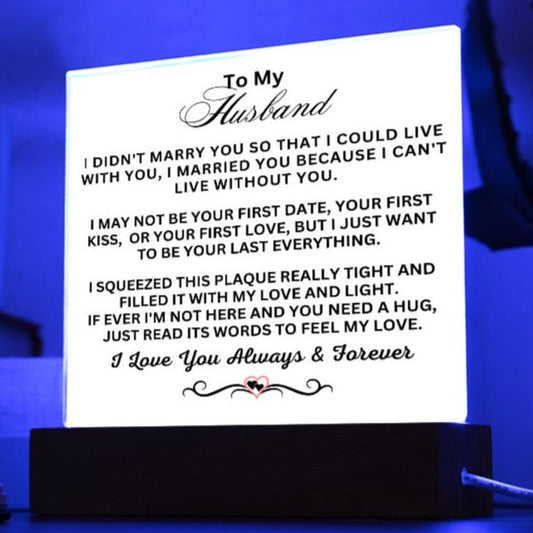 To My
Husband
I DIDN'T MARRY YOU SO THAT I COULD LIVE
WITH YOU, I MARRIED YOU BECAUSE I CAN'T
LIVE WITHOUT YOU.
I MAY NOT BE YOUR FIRST DATE, YOUR FIRST
KISS, OR YOUR FIRST LOVE, BUT I JUST WANT
TO BE YOUR LAST EVERYTHING.
I SQUEEZED THIS PLAQUE REALLY TIGHT AND
FILLED IT WITH MY LOVE AND LIGHT.
IF EVER I'M NOT HERE AND YOU NEED A HUG,
JUST READ ITS WORDS TO FEEL MY LOVE.
I Love You Always & Forever